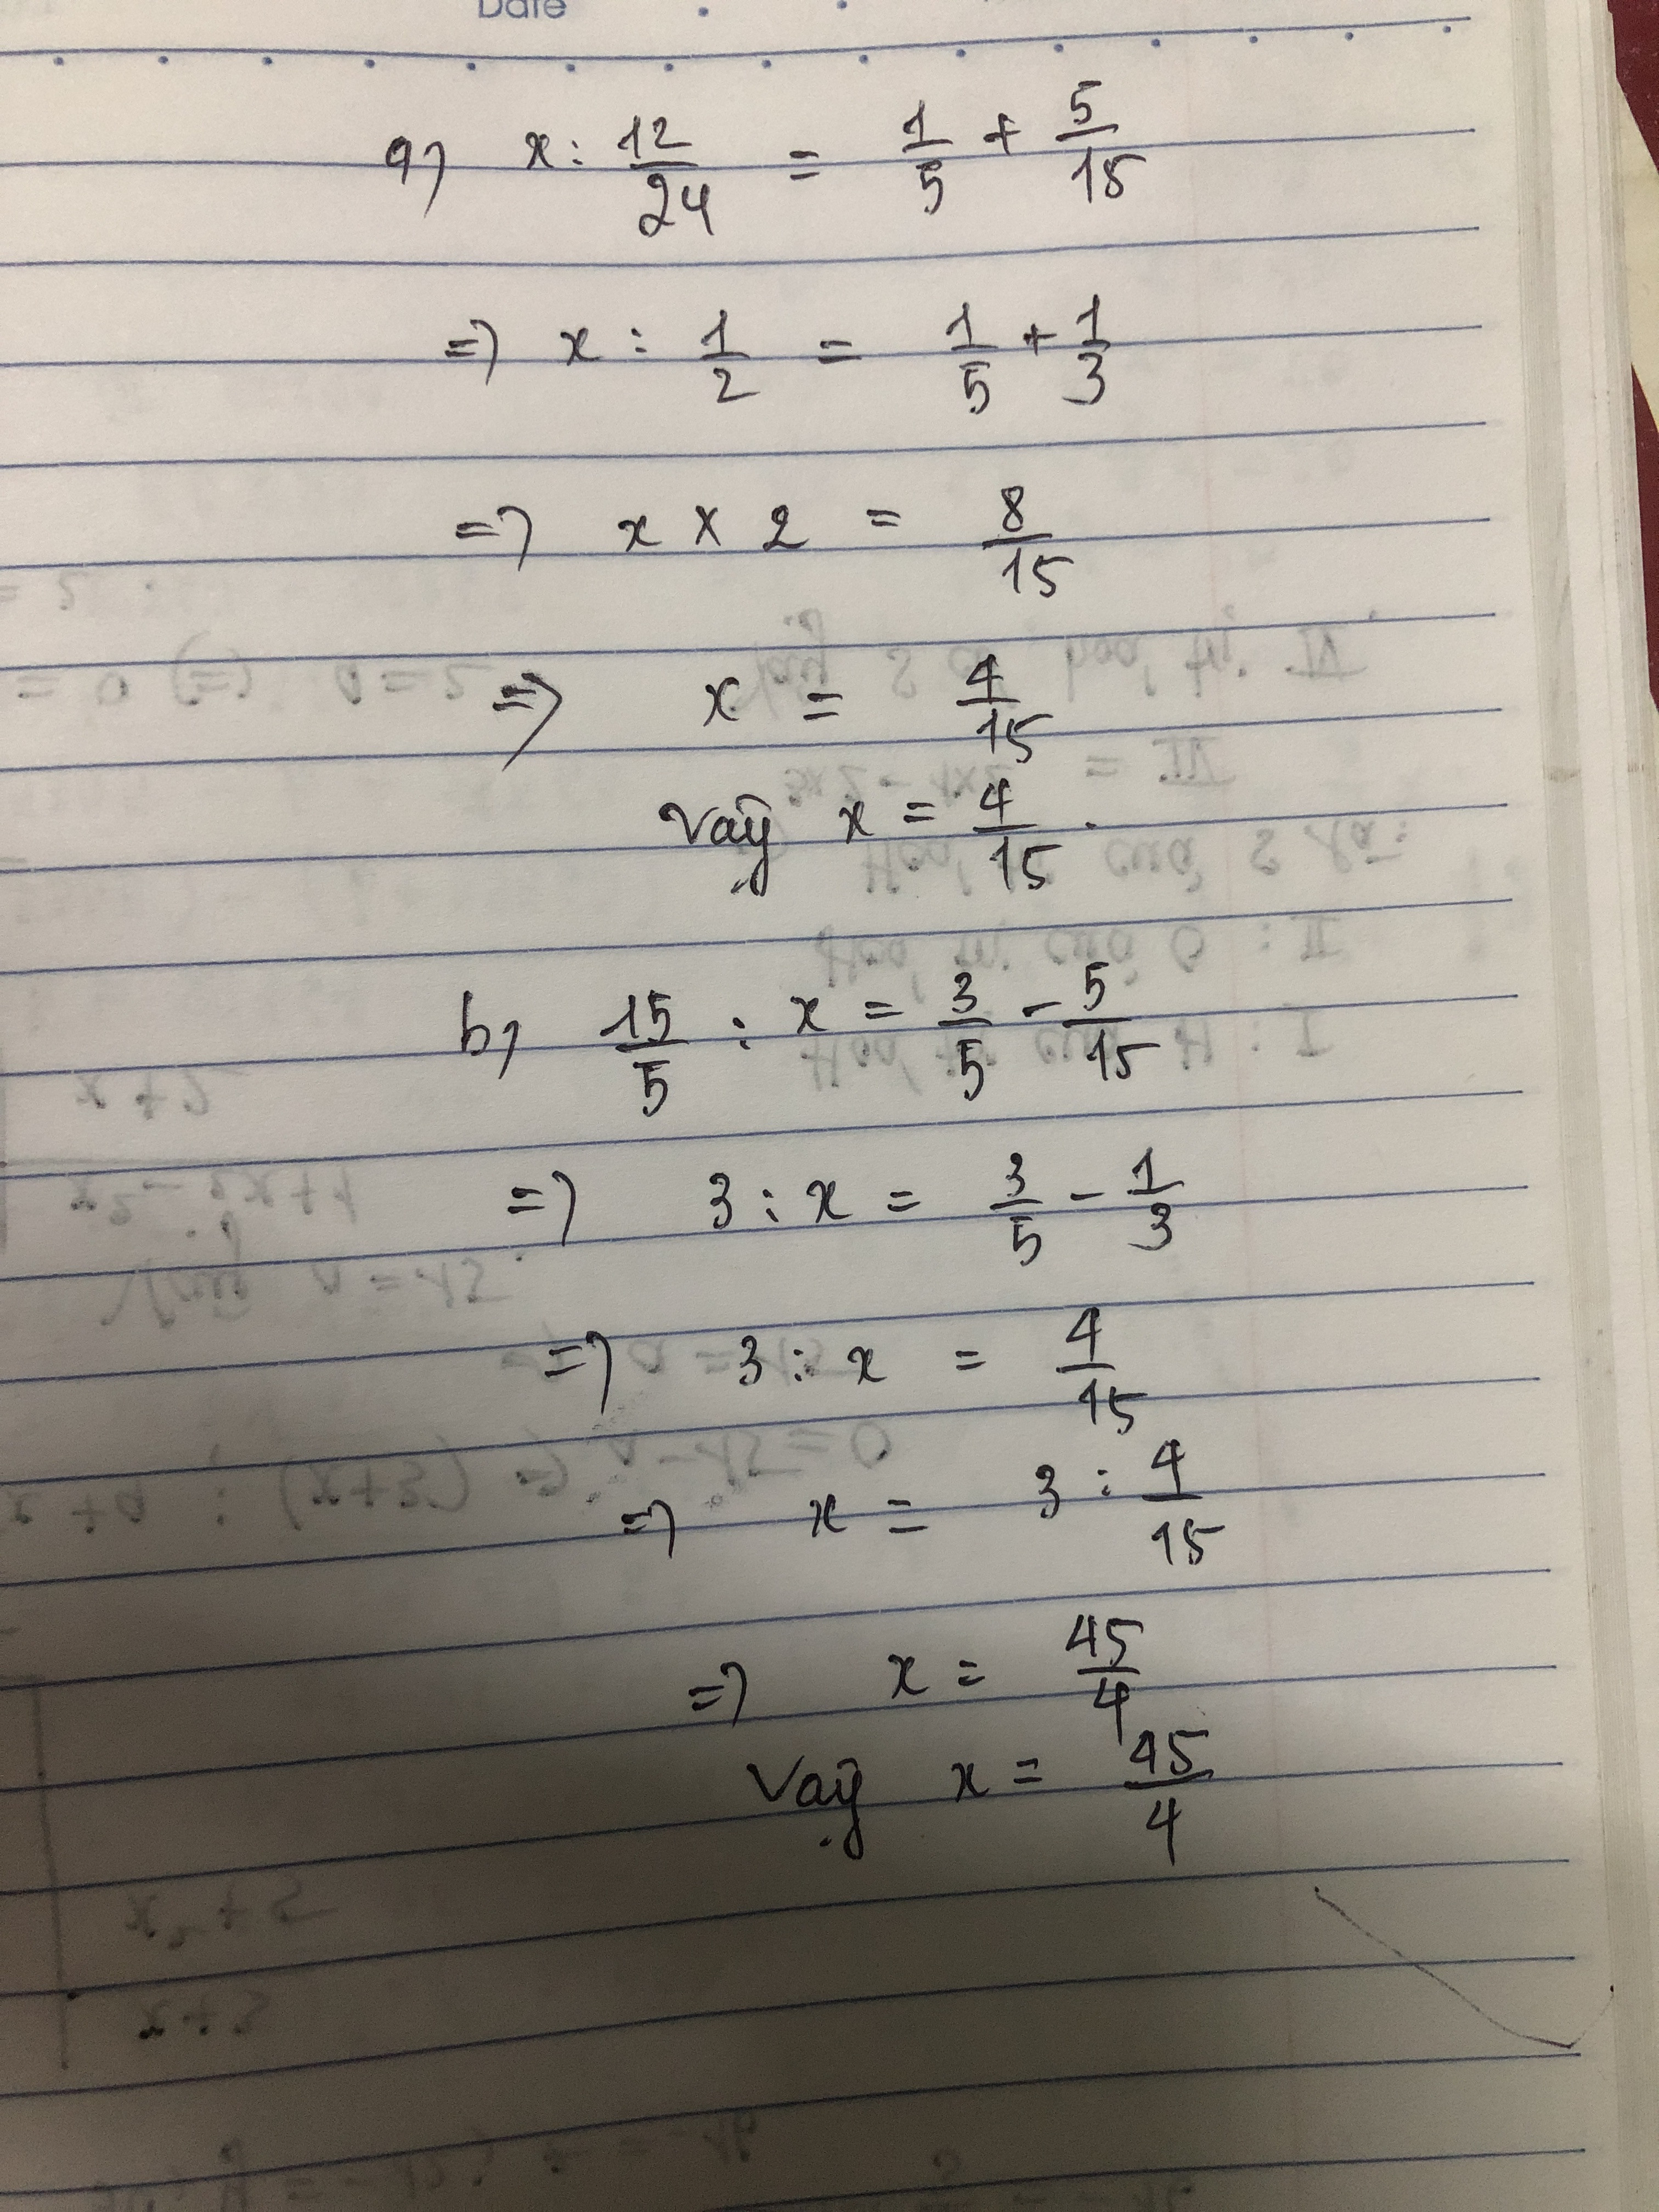 Date
a) x : 12/24 = 1/5 + 5/15
=> x : 1/2 = 1/5 + 1/3
=> x × 2 = 8/15
=> x = 4/15
Vậy x = 4/15.
b) 15/5 : x = 3/5 - 5/15
=> 3 : x = 3/5 - 1/3
=> 3 : x = 4/15
=> x = 3 : 4/15
=> x = 45/4
Vậy x = 45/4